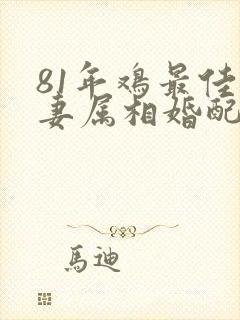 81年鸡最佳
妻属相婚配
馬迪